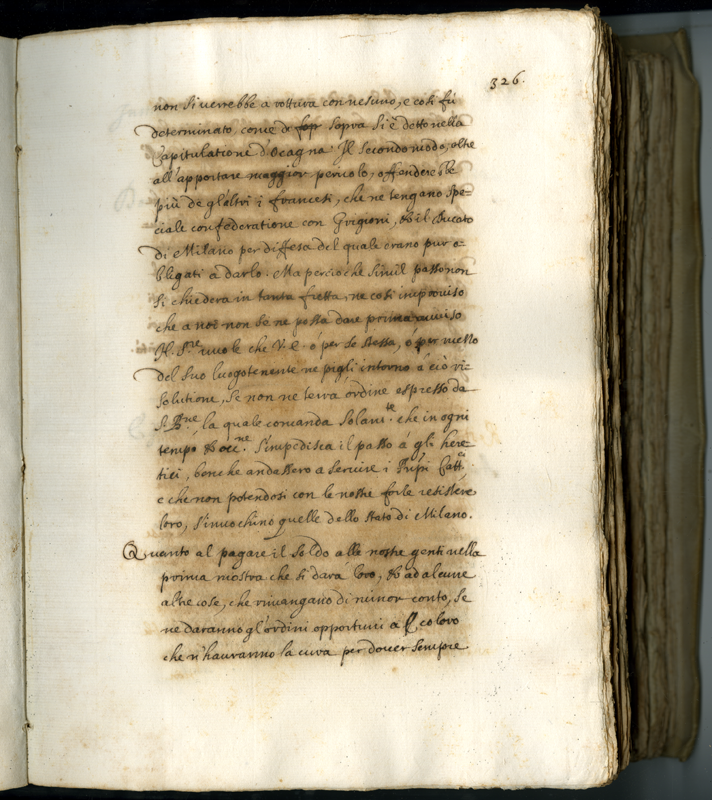 326.
non si verrebbe a rottura con nesuno, e così fù
determinato, come di sop sopra si è detto nella
Capitulatione d'Ocagna. Il secondo modo, oltre
all'apportare maggior pericolo, offenderebbe
più de gl'altri i francesi, che ne tengano spe-
ciale confederatione con Grigioni, et il Ducato
di Milano per diffesa del quale erano pur o-
bligati a darlo. Ma percioche simil passo non
si chiederà in tanta fretta, ne così improviso
che a noi non se ne possa dare prima aviso
N. Sre vuole che V.E. ò per se stessa, ò per mezzo
del suo luogotenente ne pigli intorno à ciò ri-
solutione, se non ne terrà ordine espresso da
S. Bne, la quale comanda solamte che in ogni
tempo et occne s'impedisca il passo à gli here-
tici, benche andassero a servire i Prpi Cattci
e che non potendosi con le nostre forze resistere
loro, s'invochino quelle dello stato di Milano.
Quanto al pagare il soldo alle nostre genti nella
prima mostra che si darà loro, et ad alcune
altre cose, che rimangano di minor conto, se
ne daranno gl'ordini opportuni a coloro
che n'hauranno la cura per dover sempre